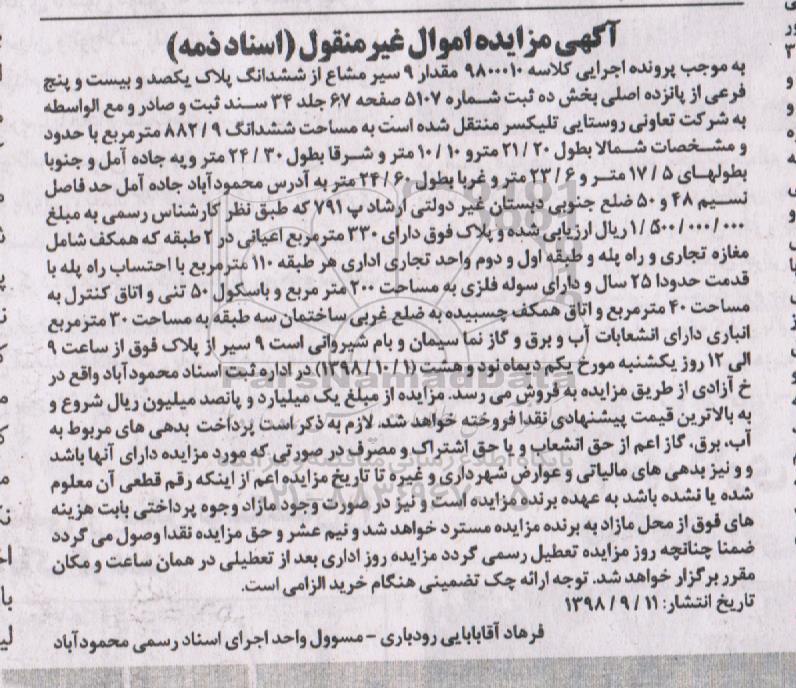 آگهی مزایده اموال غیر منقول (اسناد ذمه)
به موجب پرونده اجرایی کلاسه ۹۸۰۰۰۱۰ مقدار ۹ سیر مشاع از ششدانگ پلاک یکصد و بیست و پنج
فرعی از پانزده اصلی بخش ده ثبت شماره ۵۱۰۷ صفحه ۶۷ جلد ۳۴ سند ثبت و صادر و مع الواسطه
به شرکت تعاونی روستایی تلیکسر منتقل شده است به مساحت ششدانگ ۸۸۲/۹ مترمربع با حدود
و مشخصات شمالا بطول ۲۱/۲۰ مترو ۱۰/۱۰ متر و شرقا بطول ۲۴/۳۰ متر و به جاده آمل و جنوبا
بطولهای ۱۷/۵ متر و ۲۳/۶ متر و غربا بطول ۲۴/۶۰ متر به آدرس محمودآباد جاده آمل حد فاصل
نسیم ۴۸ و ۵۰ ضلع جنوبی دبستان غیر دولتی ارشاد پ ۷۹۱ که طبق نظر کارشناس رسمی به مبلغ
۱/۵۰۰/۰۰۰/۰۰۰ ریال ارزیابی شده و پلاک فوق دارای ۳۳۰ مترمربع اعیانی در ۲ طبقه که همکف شامل
مغازه تجاری و راه پله و طبقه اول و دوم واحد تجاری اداری هر طبقه ۱۱۰ مترمربع با احتساب راه پله با
قدمت حدودا ۲۵ سال و دارای سوله فلزی به مساحت ۲۰۰ متر مربع و باسکول ۵۰ تنی و اتاق کنترل به
مساحت ۴۰ مترمربع و اتاق همکف چسبیده به ضلع غربی ساختمان سه طبقه به مساحت ۳۰ مترمربع
انباری دارای انشعابات آب و برق و گاز نما سیمان و بام شیروانی است ۹ سیر از پلاک فوق از ساعت ۹
الی ۱۲ روز یکشنبه مورخ یکم دیماه نود و هشت (۱۳۹۸/۱۰/۱) در اداره ثبت اسناد محمودآباد واقع در
خ آزادی از طریق مزایده به فروش می رسد. مزایده از مبلغ یک میلیارد و پانصد میلیون ریال شروع و
به بالاترین قیمت پیشنهادی نقدا فروخته خواهد شد. لازم به ذکر است پرداخت بدهی های مربوط به
آب، برق، گاز اعم از حق انشعاب و یا حق اشتراک و مصرف در صورتی که مورد مزایده دارای آنها باشد
و و نیز بدهی های مالیاتی و عوارض شهرداری و غیره تا تاریخ مزایده اعم از اینکه رقم قطعی آن معلوم
شده یا نشده باشد به عهده برنده مزایده است و نیز در صورت وجود مازاد وجوه پرداختی بابت هزینه
های فوق از محل مازاد به برنده مزایده مسترد خواهد شد و نیم عشر و حق مزایده نقدا وصول می گردد
ضمنا چنانچه روز مزایده تعطیل رسمی گردد مزایده روز اداری بعد از تعطیلی در همان ساعت و مکان
مقرر برگزار خواهد شد. توجه ارائه چک تضمینی هنگام خرید الزامی است.
تاریخ انتشار: ۱۳۹۸/۹/۱۱
فرهاد آقابابایی رودباری - مسوول واحد اجرای اسناد رسمی محمودآباد
ParsNamadData